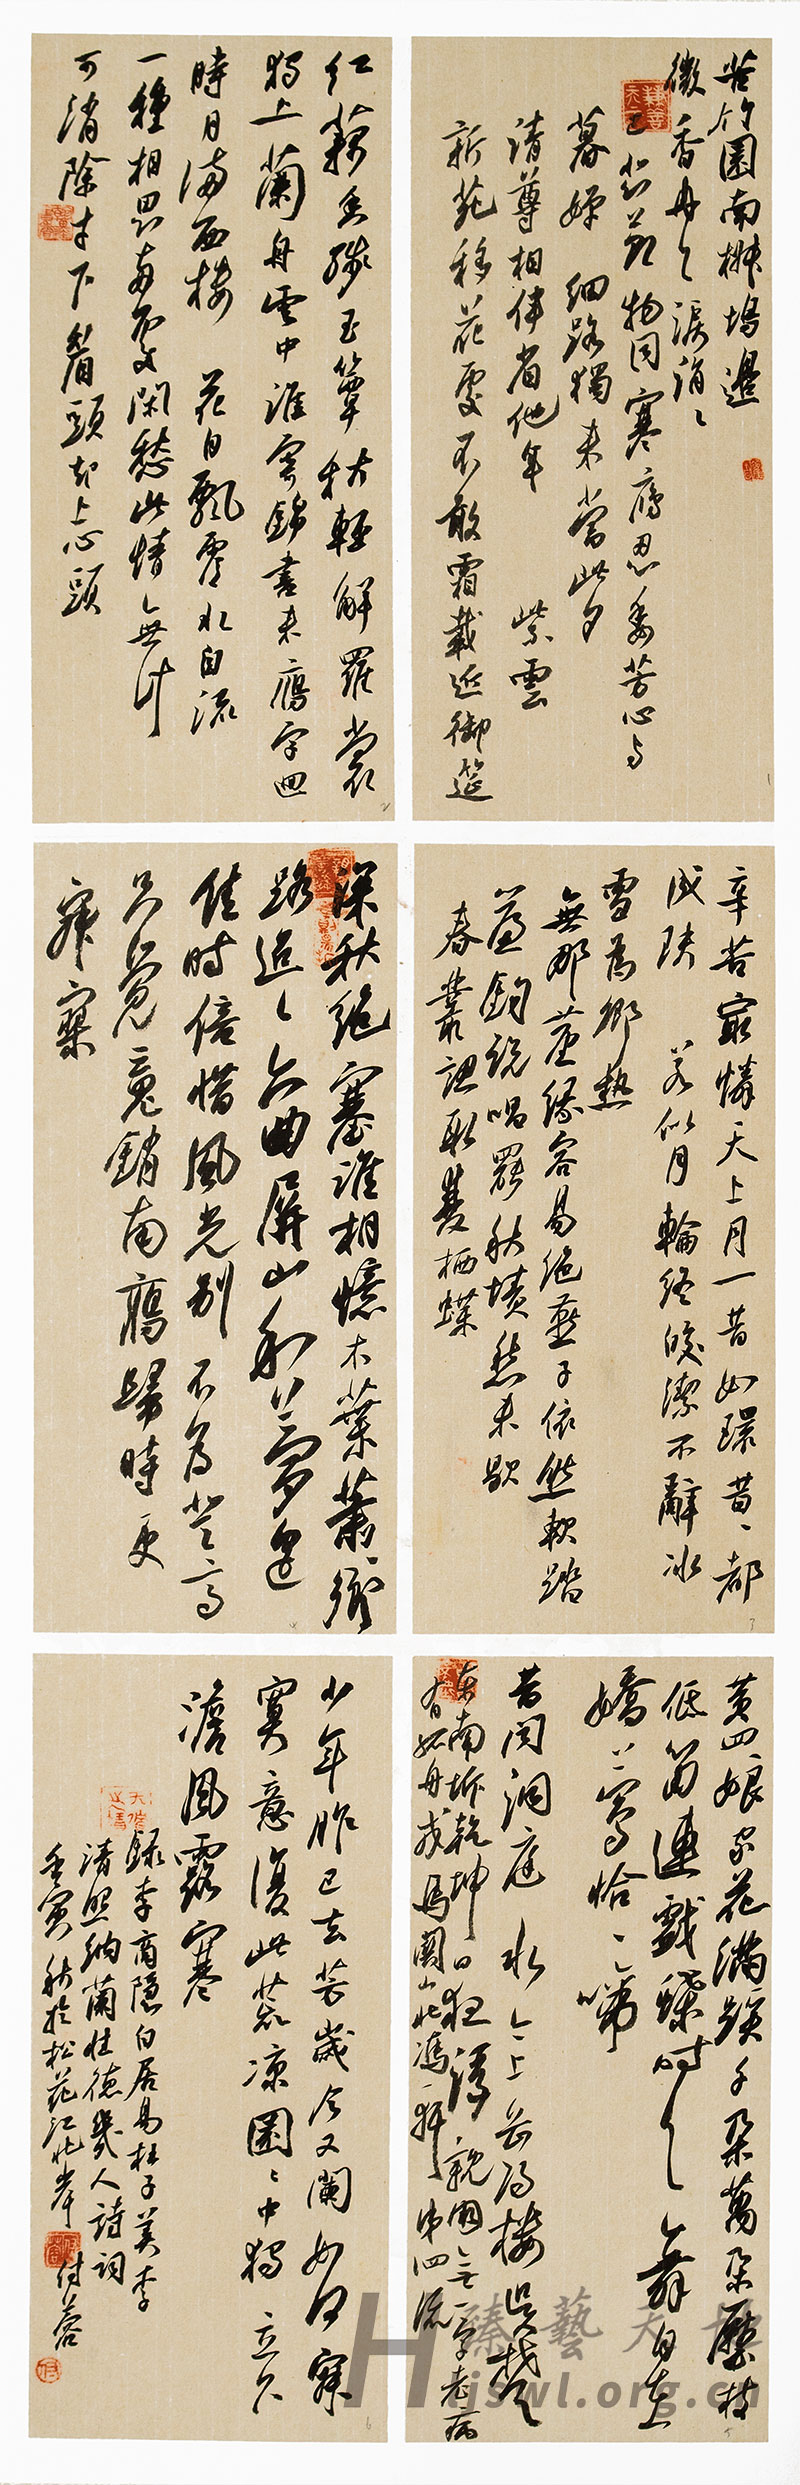 苦竹園南椒塢邊
微香冉々淚涓々
已悲節物同寒雁忍委芳心与
暮蟬 細路獨来當此夕
清尊相伴省他年 紫雲
新苑移花處不敢霜載近御筵
红藕香殘玉簟秋輕解羅裳
獨上蘭舟雲中誰寄錦書来雁字回
時月满西樓 花自飄零水自流
一種相思兩處閑愁此情々無計
可消除才下眉頭却上心頭
辛苦最憐天上月一昔如環昔々都
成玦 若似月輪終皎潔不辭冰
雪爲卿熱
無那塵緣容易絶燕子依然軟踏
簾鈎説唱罷秋墳愁未歇
春叢認取雙栖蝶
深秋絶塞誰相憶木葉蕭々鄉
路迢々六曲屏山和夢遥
佳時倍惜風光别 不爲登高
只覺魂銷南雁歸時更
寂寥
黄四娘家花满蹊千朵萬朵壓枝
低留連戲蝶時々舞自在
嬌鶯恰々啼
昔闻洞庭水今上岳阳樓吴楚
東南坼乾坤日夜浮親朋無一字老病
有孤舟戎馬關山北憑軒涕泗流
少年昨已去芳歲今又闌如何寂
寞意復此荒凉園々中獨立久
澹風露寒
録李商隱白居易杜子美李
清照納蘭性德幾人詩詞
壬寅秋於松花江北岸 付蓉
hljswl.org.cn